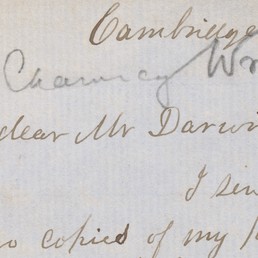 Cambridge
Chauncey Wr
dear Mr Darwi
I sen
o copies of my